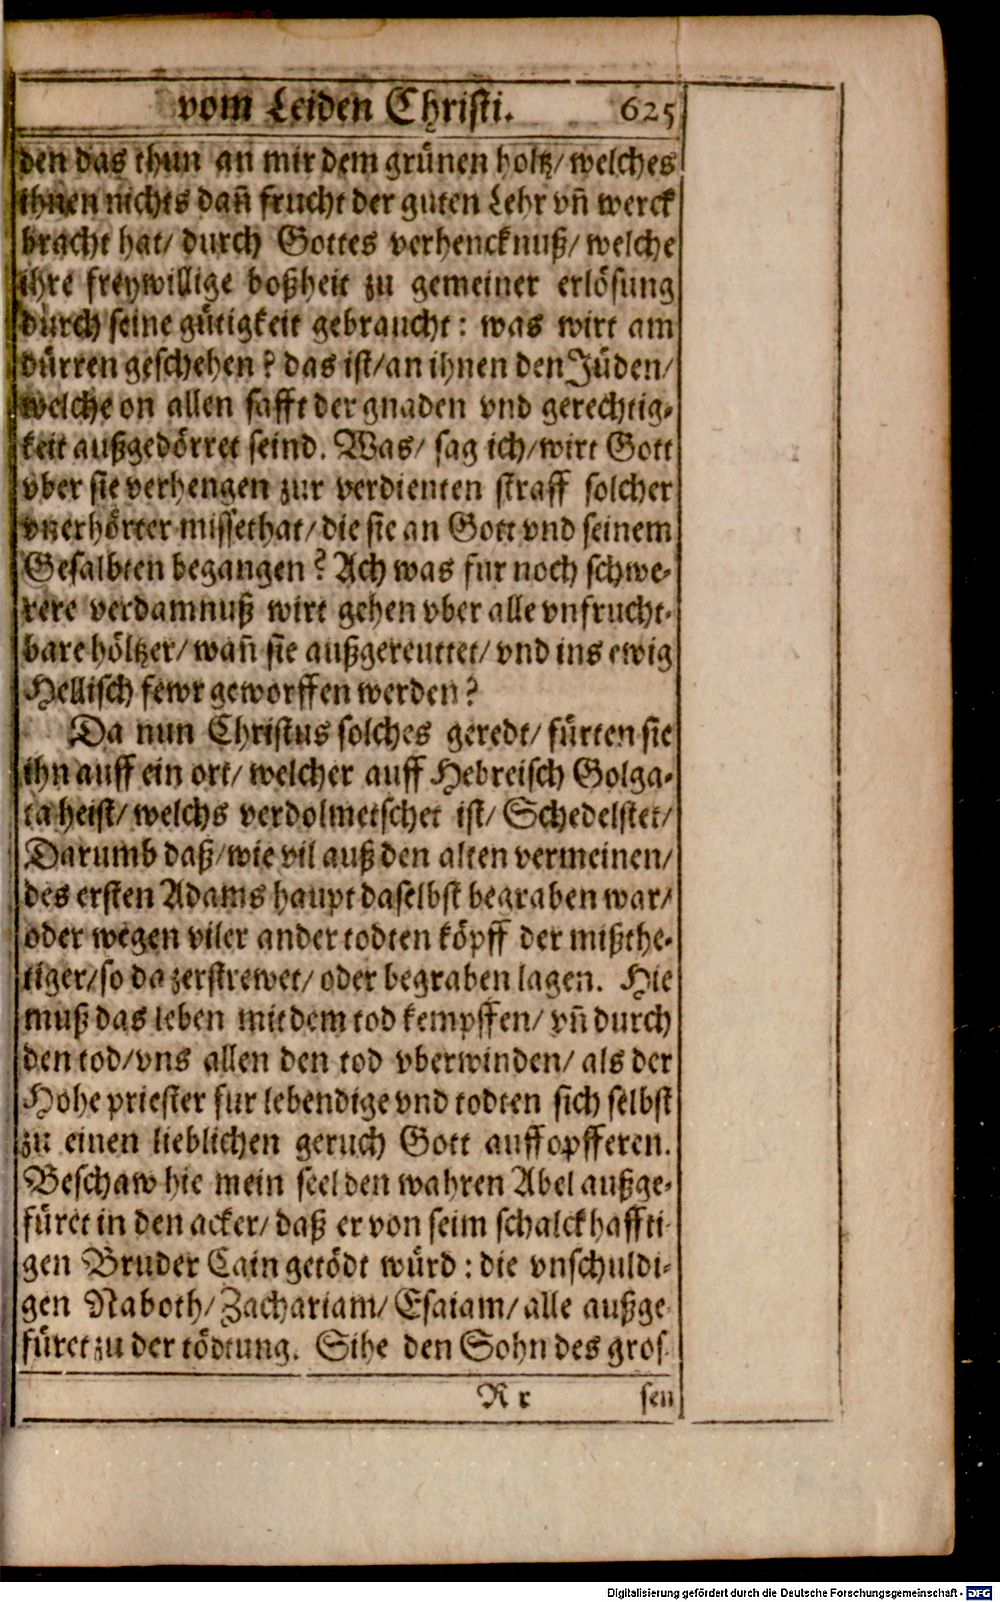 vom Leiden Christi. 625
den das thun an mir dem grünen holtz/ welches
ihnen nichts dañ frucht der guten Lehr vñ werck
bracht hat/ durch Gottes verhencknuß/ welche
ihre freywillige boßheit zu gemeiner erlösung
durch seine gütigkeit gebraucht: was wirt am
dürren geschehen? das ist/ an ihnen den Jüden/
welche on allen safft der gnaden vnd gerechtig-
keit außgedörret seind. Was/ sag ich/ wirt Gott
vber sie verhengen zur verdienten straff solcher
vnerhörter missethat/ die sie an Gott vnd seinem
Gesalbten begangen? Ach was fur noch schwe-
rere verdamnuß wirt gehen vber alle vnfrucht-
bare höltzer/ wañ sie außgereuttet/ vnd ins ewig
Hellisch fewr geworffen werden?
Da nun Christus solches geredt/ fürten sie
ihn auff ein ort/ welcher auff Hebreisch Golga-
ta heist/ welchs verdolmetschet ist/ Schedelstet/
Darumb daß/ wie vil auß den alten vermeinen/
des ersten Adams haupt daselbst begraben war/
oder wegen viler ander todten köpff der mißthe-
tiger/ so da zerstrewet/ oder begraben lagen. Hie
muß das leben mit dem tod kempffen/ vñ durch
den tod/ vns allen den tod vberwinden/ als der
Hohe priester fur lebendige vnd todten sich selbst
zu einen lieblichen geruch Gott auffopfferen.
Beschaw hie mein seel den wahren Abel außge-
füret in den acker/ daß er von seim schalckhaffti-
gen Bruder Cain getödt würd: die vnschuldi-
gen Naboth/ Zachariam/ Esaiam/ alle außge-
füret zu der tödtung. Sihe den Sohn des gros-
R r sen
Digitalisierung gefördert durch die Deutsche Forschungsgemeinschaft - DFG